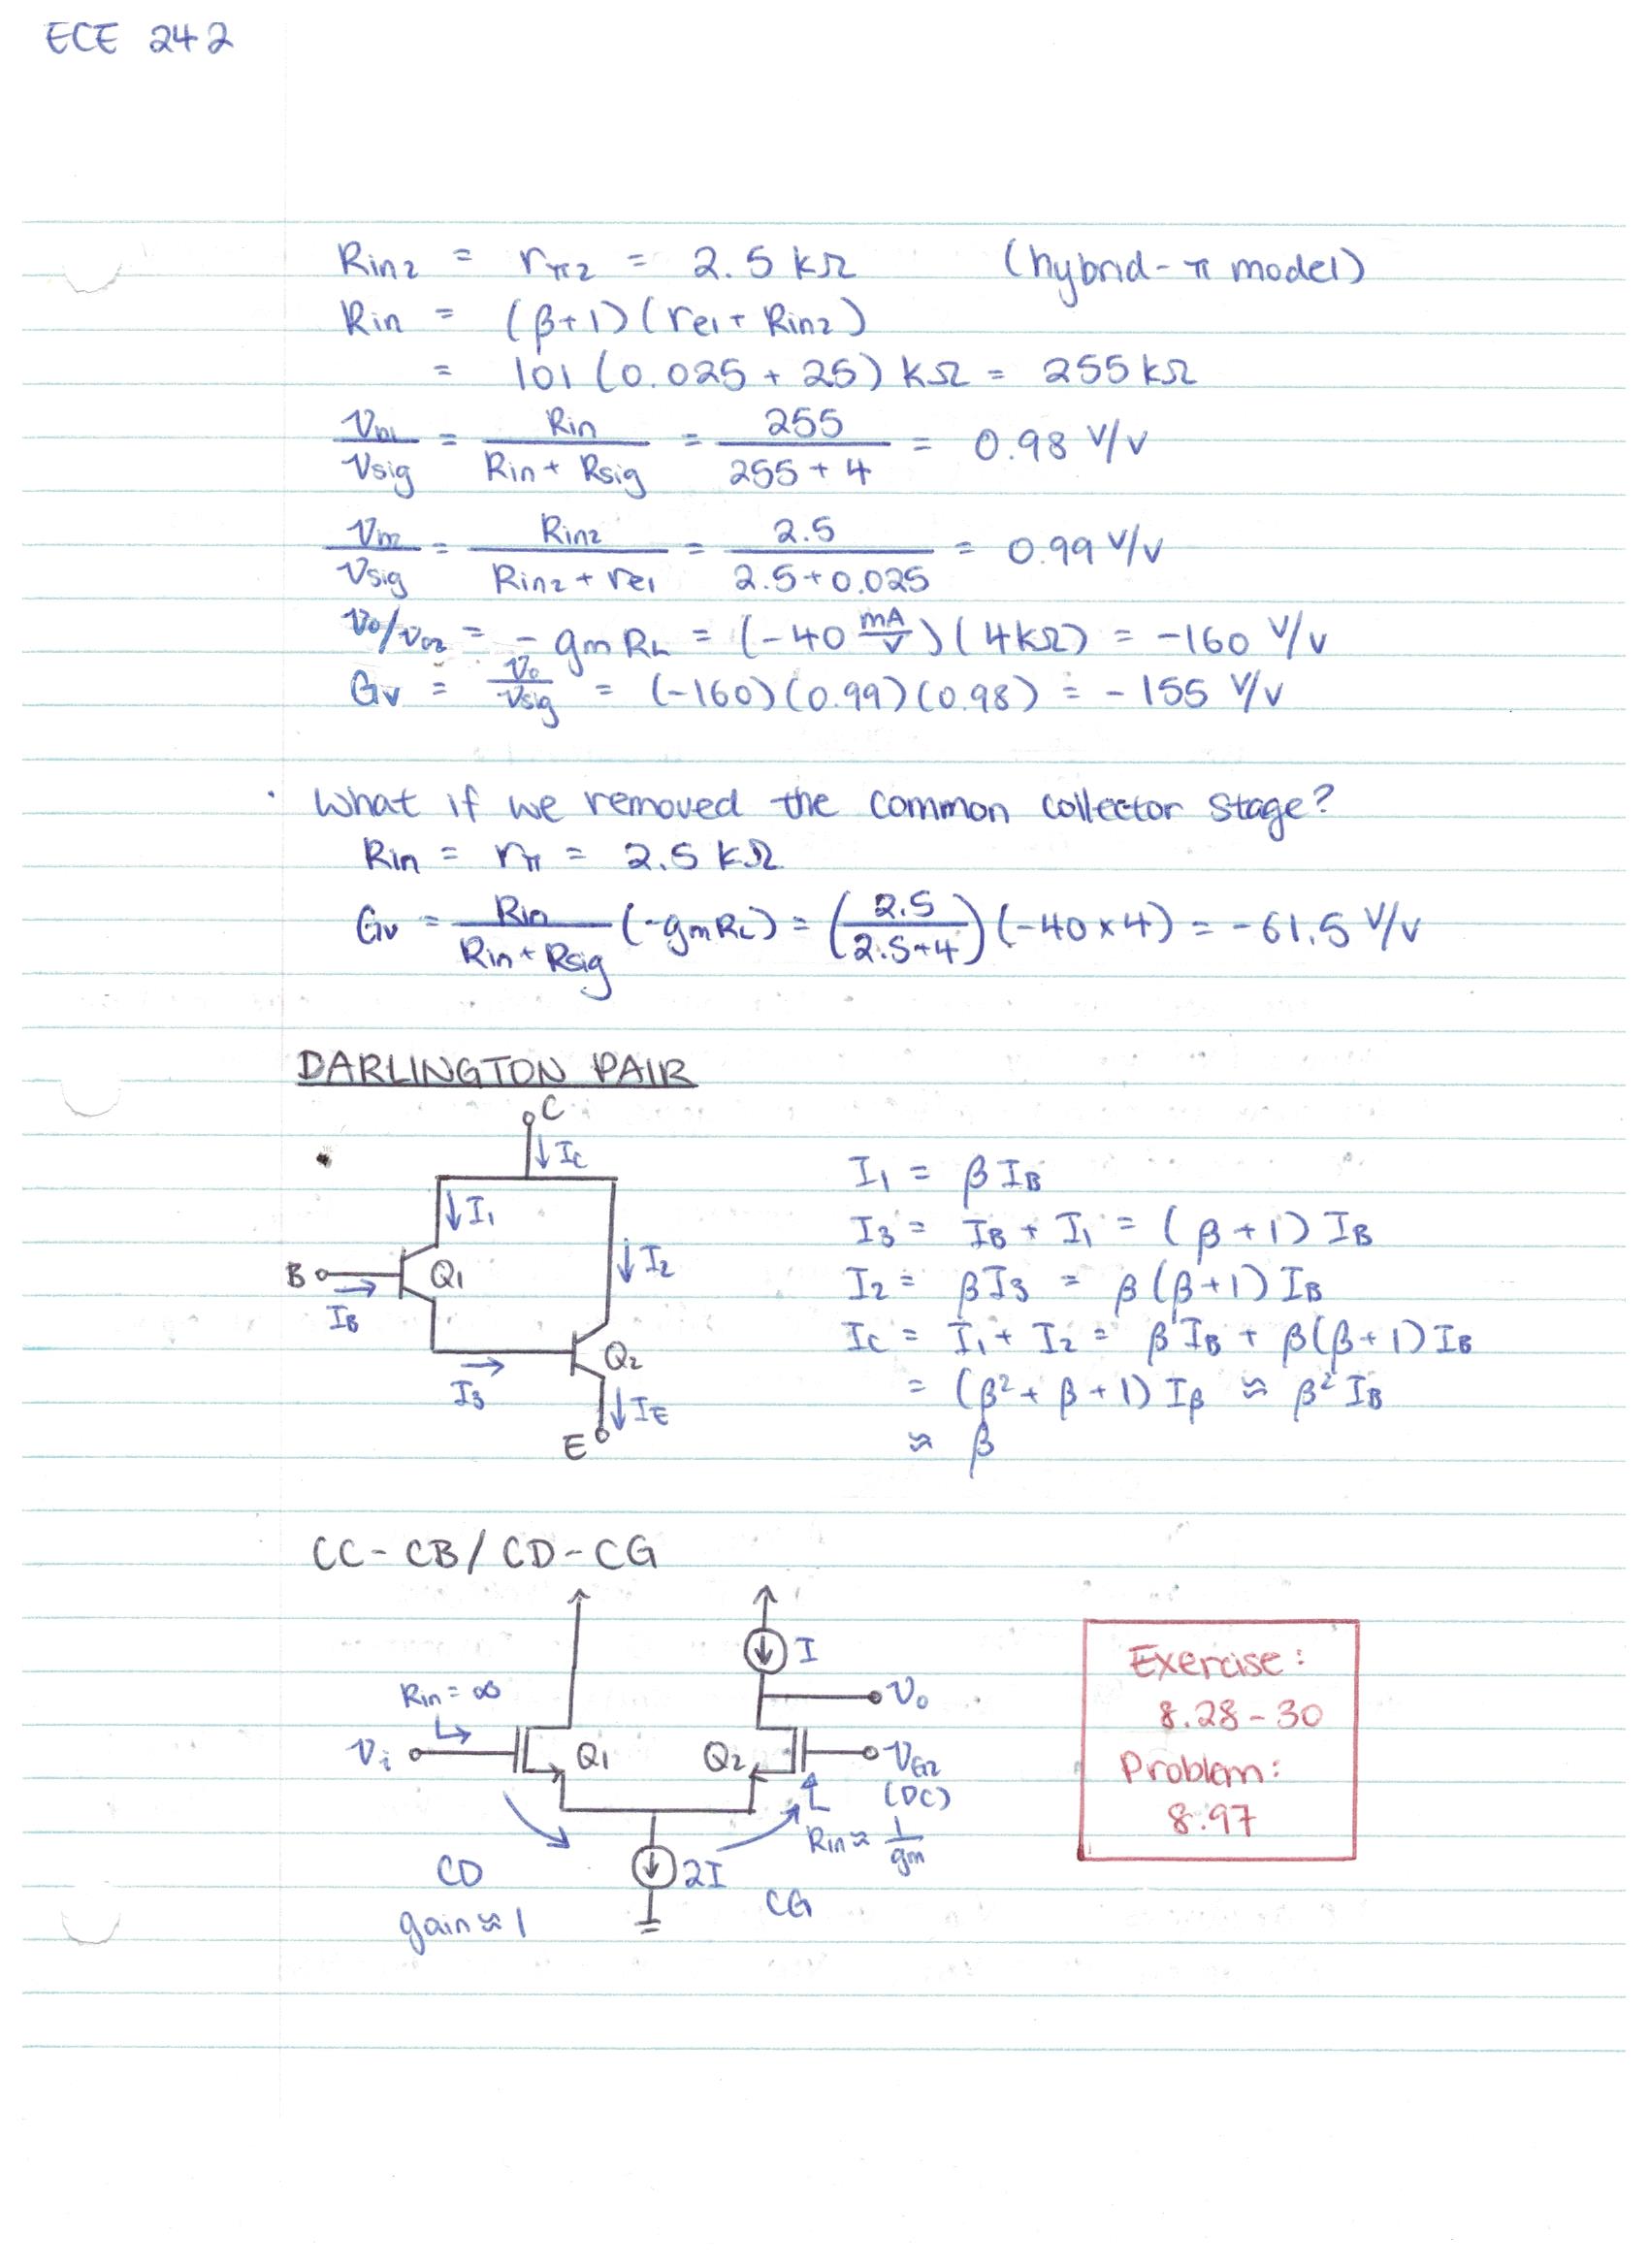 ECE 242
Rin2 = rπ2 = 2.5 kΩ (hybrid-π model)
Rin = (β+1)(re1 + Rin2)
= 101 (0.025 + 25) kΩ = 255 kΩ
Vb1/Vsig = Rin/(Rin + Rsig) = 255/(255 + 4) = 0.98 V/V
Vb2/Vsig = Rin2/(Rin2 + re1) = 2.5/(2.5+0.025) = 0.99 V/V
Vo/Vb2 = -gmRL = (-40 mA/V)(4kΩ) = -160 V/V
Gv = Vo/Vsig = (-160)(0.99)(0.98) = -155 V/V
· What if we removed the common collector stage?
Rin = rπ = 2.5 kΩ
Gv = Rin/(Rin + Rsig) (-gmRL) = (2.5/(2.5+4)) (-40×4) = -61.5 V/V
DARLINGTON PAIR
C
↓ Ic
↓ I1
↓ I2
B
Q1
IB
Q2
I3
↓ IE
E
I1 = βIB
I3 = IB + I1 = (β+1) IB
I2 = βI3 = β(β+1) IB
Ic = I1 + I2 = βIB + β(β+1) IB
= (β² + β + 1) Iβ ≈ β² IB
≈ β
CC-CB/CD-CG
I
Vo
Rin = ∞
Vi
Q1
Q2
VG2
(DC)
Rin ≈ 1/gm
2I
CD
gain ≈ 1
CG
Exercise:
8.28-30
Problem:
8.97